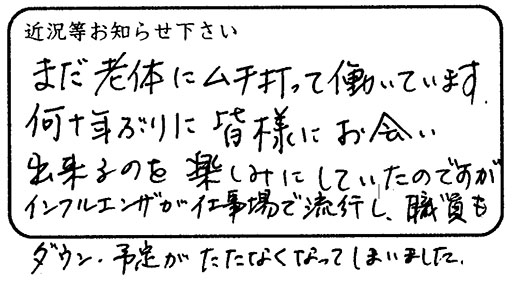 近況等お知らせ下さい
まだ老体にムチ打って働いています.
何十年ぶりに皆様にお会い
出来るのを楽しみにしていたのですが
インフルエンザが仕事場で流行し、職員も
ダウン.予定がたたなくなってしまいました.